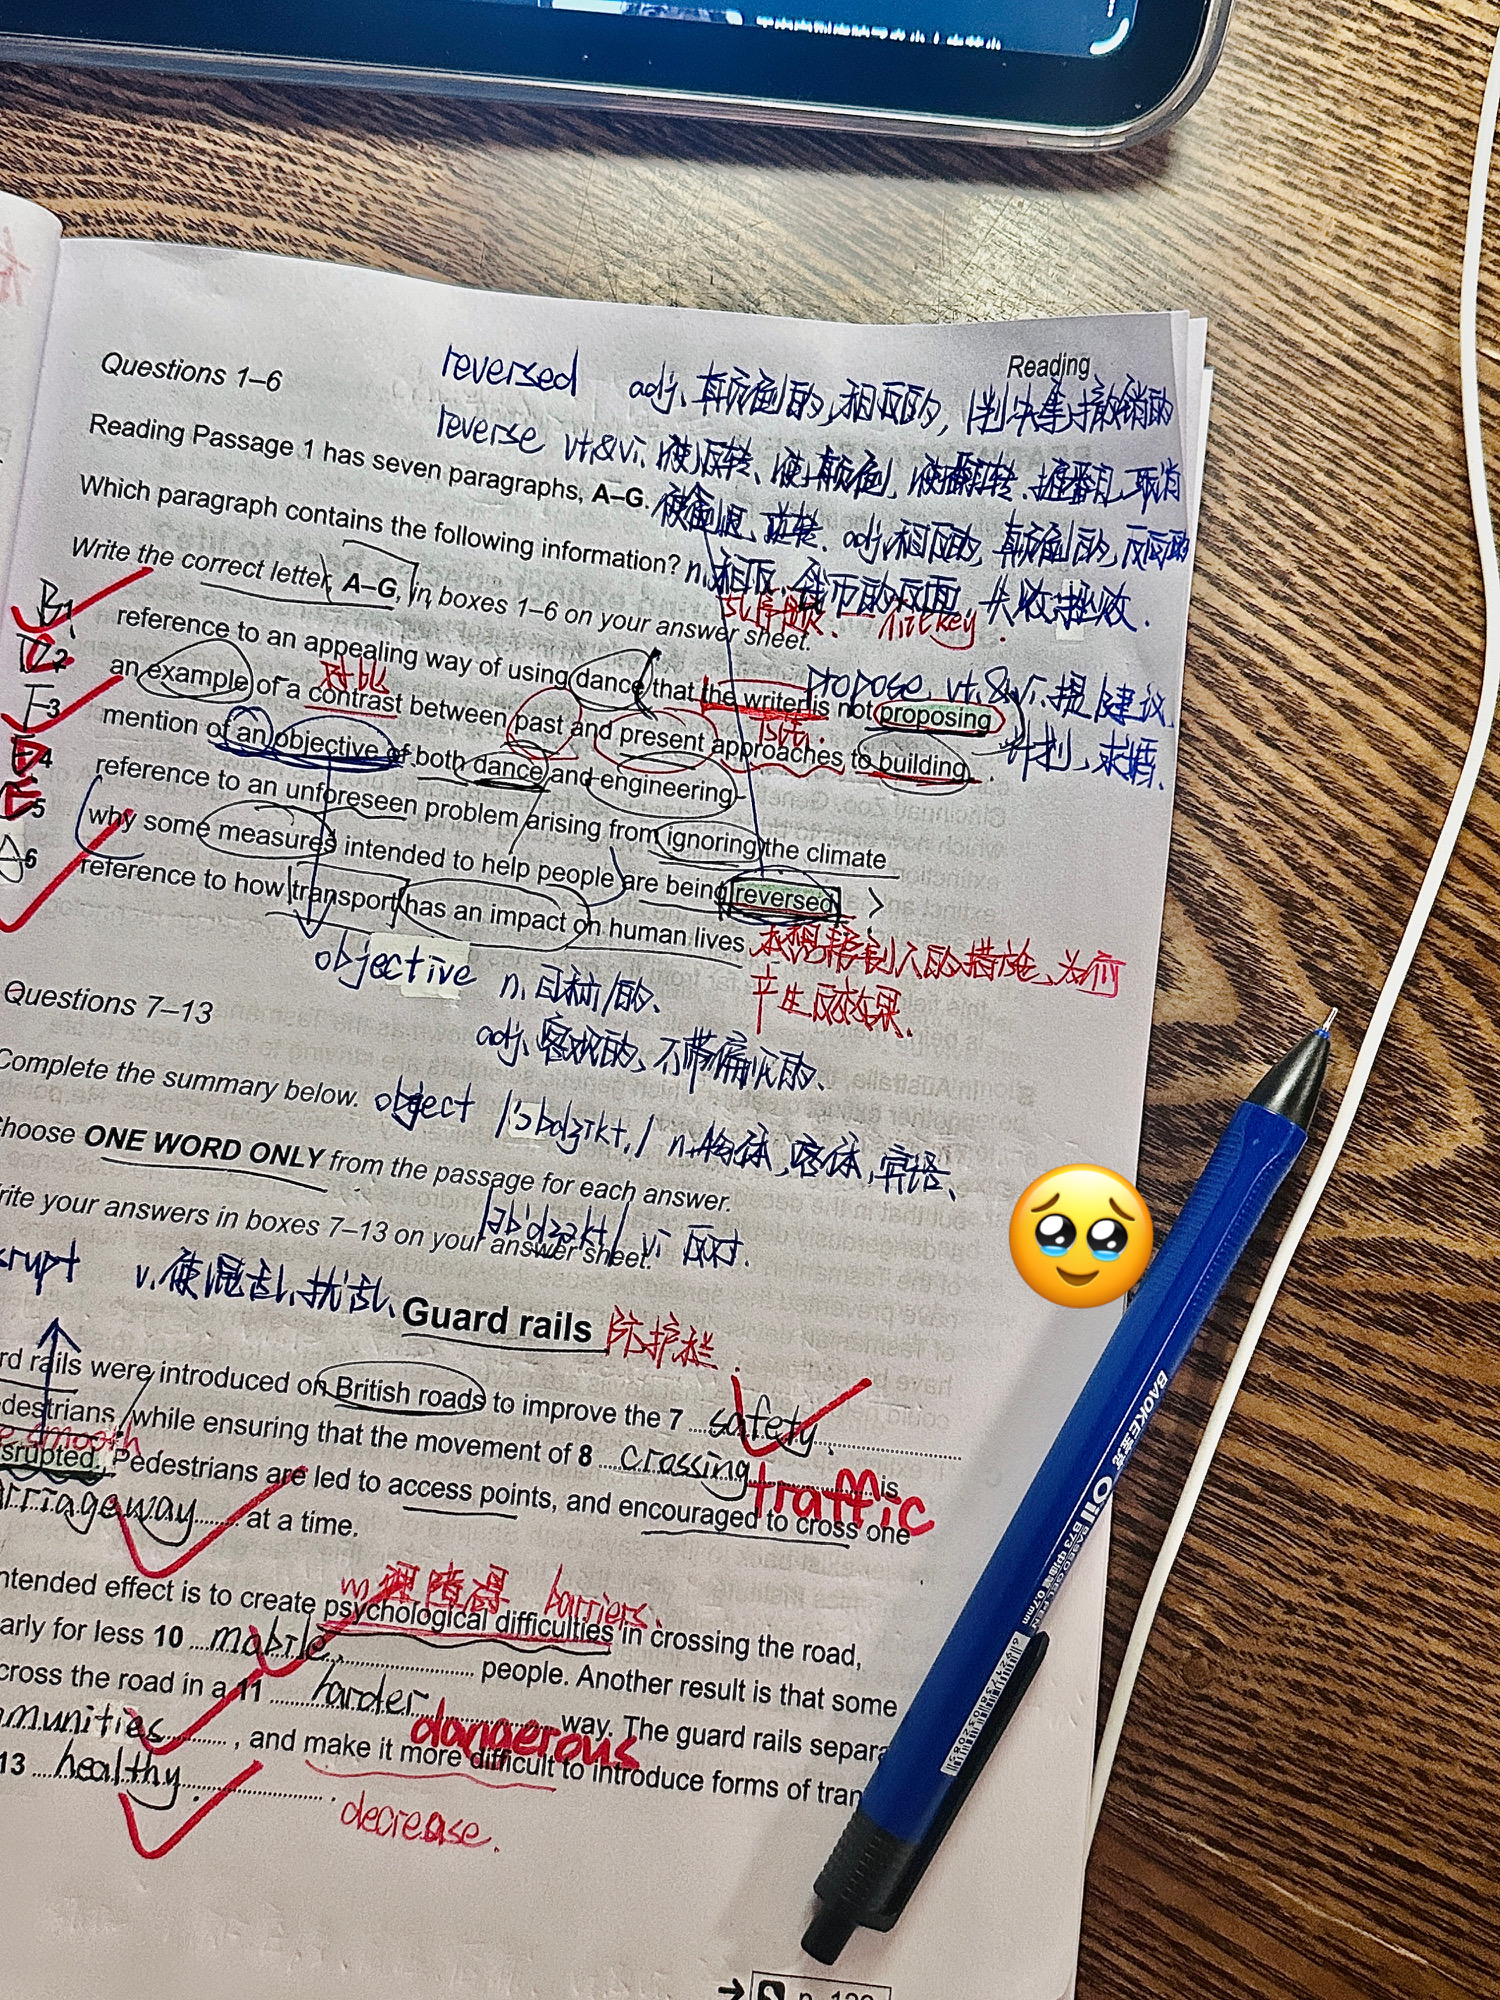 Reading
Questions 1–6
reversed adj. 颠倒的,相反的,(判决等)撤销的
Reading Passage 1 has seven paragraphs, A–G.
reverse vt.&vi. 使反转、使颠倒,使翻转、推翻,取消
Which paragraph contains the following information?
被倒退、逆转. adj.相反的,颠倒的,反面的
Write the correct letter, A–G, in boxes 1–6 on your answer sheet.
n.相反.钱币的反面,失败挫败.
B1 reference to an appealing way of using dance that the writer is not proposing
propose vt.&vi.提(建议,
计划、求婚.
2 an example of a contrast between past and present approaches to building
对比
F3 mention of an objective of both dance and engineering
4 reference to an unforeseen problem arising from ignoring the climate
5 why some measures intended to help people are being reversed
A6 reference to how transport has an impact on human lives
本想帮到人的措施、为何
产生反效果.
objective n.目标/的、
adj.客观的、不带偏见的、
Questions 7–13
Complete the summary below.
object n.物体,客体,宾语、
hoose ONE WORD ONLY from the passage for each answer.
rite your answers in boxes 7–13 on your answer sheet.
vi 反对.
rupt v.使混乱、扰乱、
Guard rails 防护栏.
rd rails were introduced on British roads to improve the 7 safety.
destrians, while ensuring that the movement of 8 crossing is
traffic
smooth
srupted. Pedestrians are led to access points, and encouraged to cross one
rriageway at a time.
心理障碍 barriers.
ntended effect is to create psychological difficulties in crossing the road,
arly for less 10 mobile people. Another result is that some
cross the road in a 11 harder way. The guard rails separa
dangerous
mmunities , and make it more difficult to introduce forms of tran
13 healthy.
decrease.
BAOKE 宝克
Oil
B73 中油笔 0.7mm